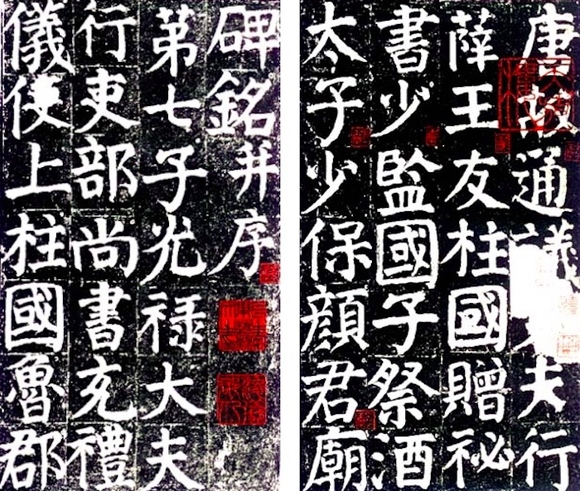 唐故通議夫行
薛王友柱國贈祕
書少監國子祭酒
太子少保顏君廟
碑銘并序
苐七子光禄大夫
行吏部尚書充禮
儀使上柱國魯郡